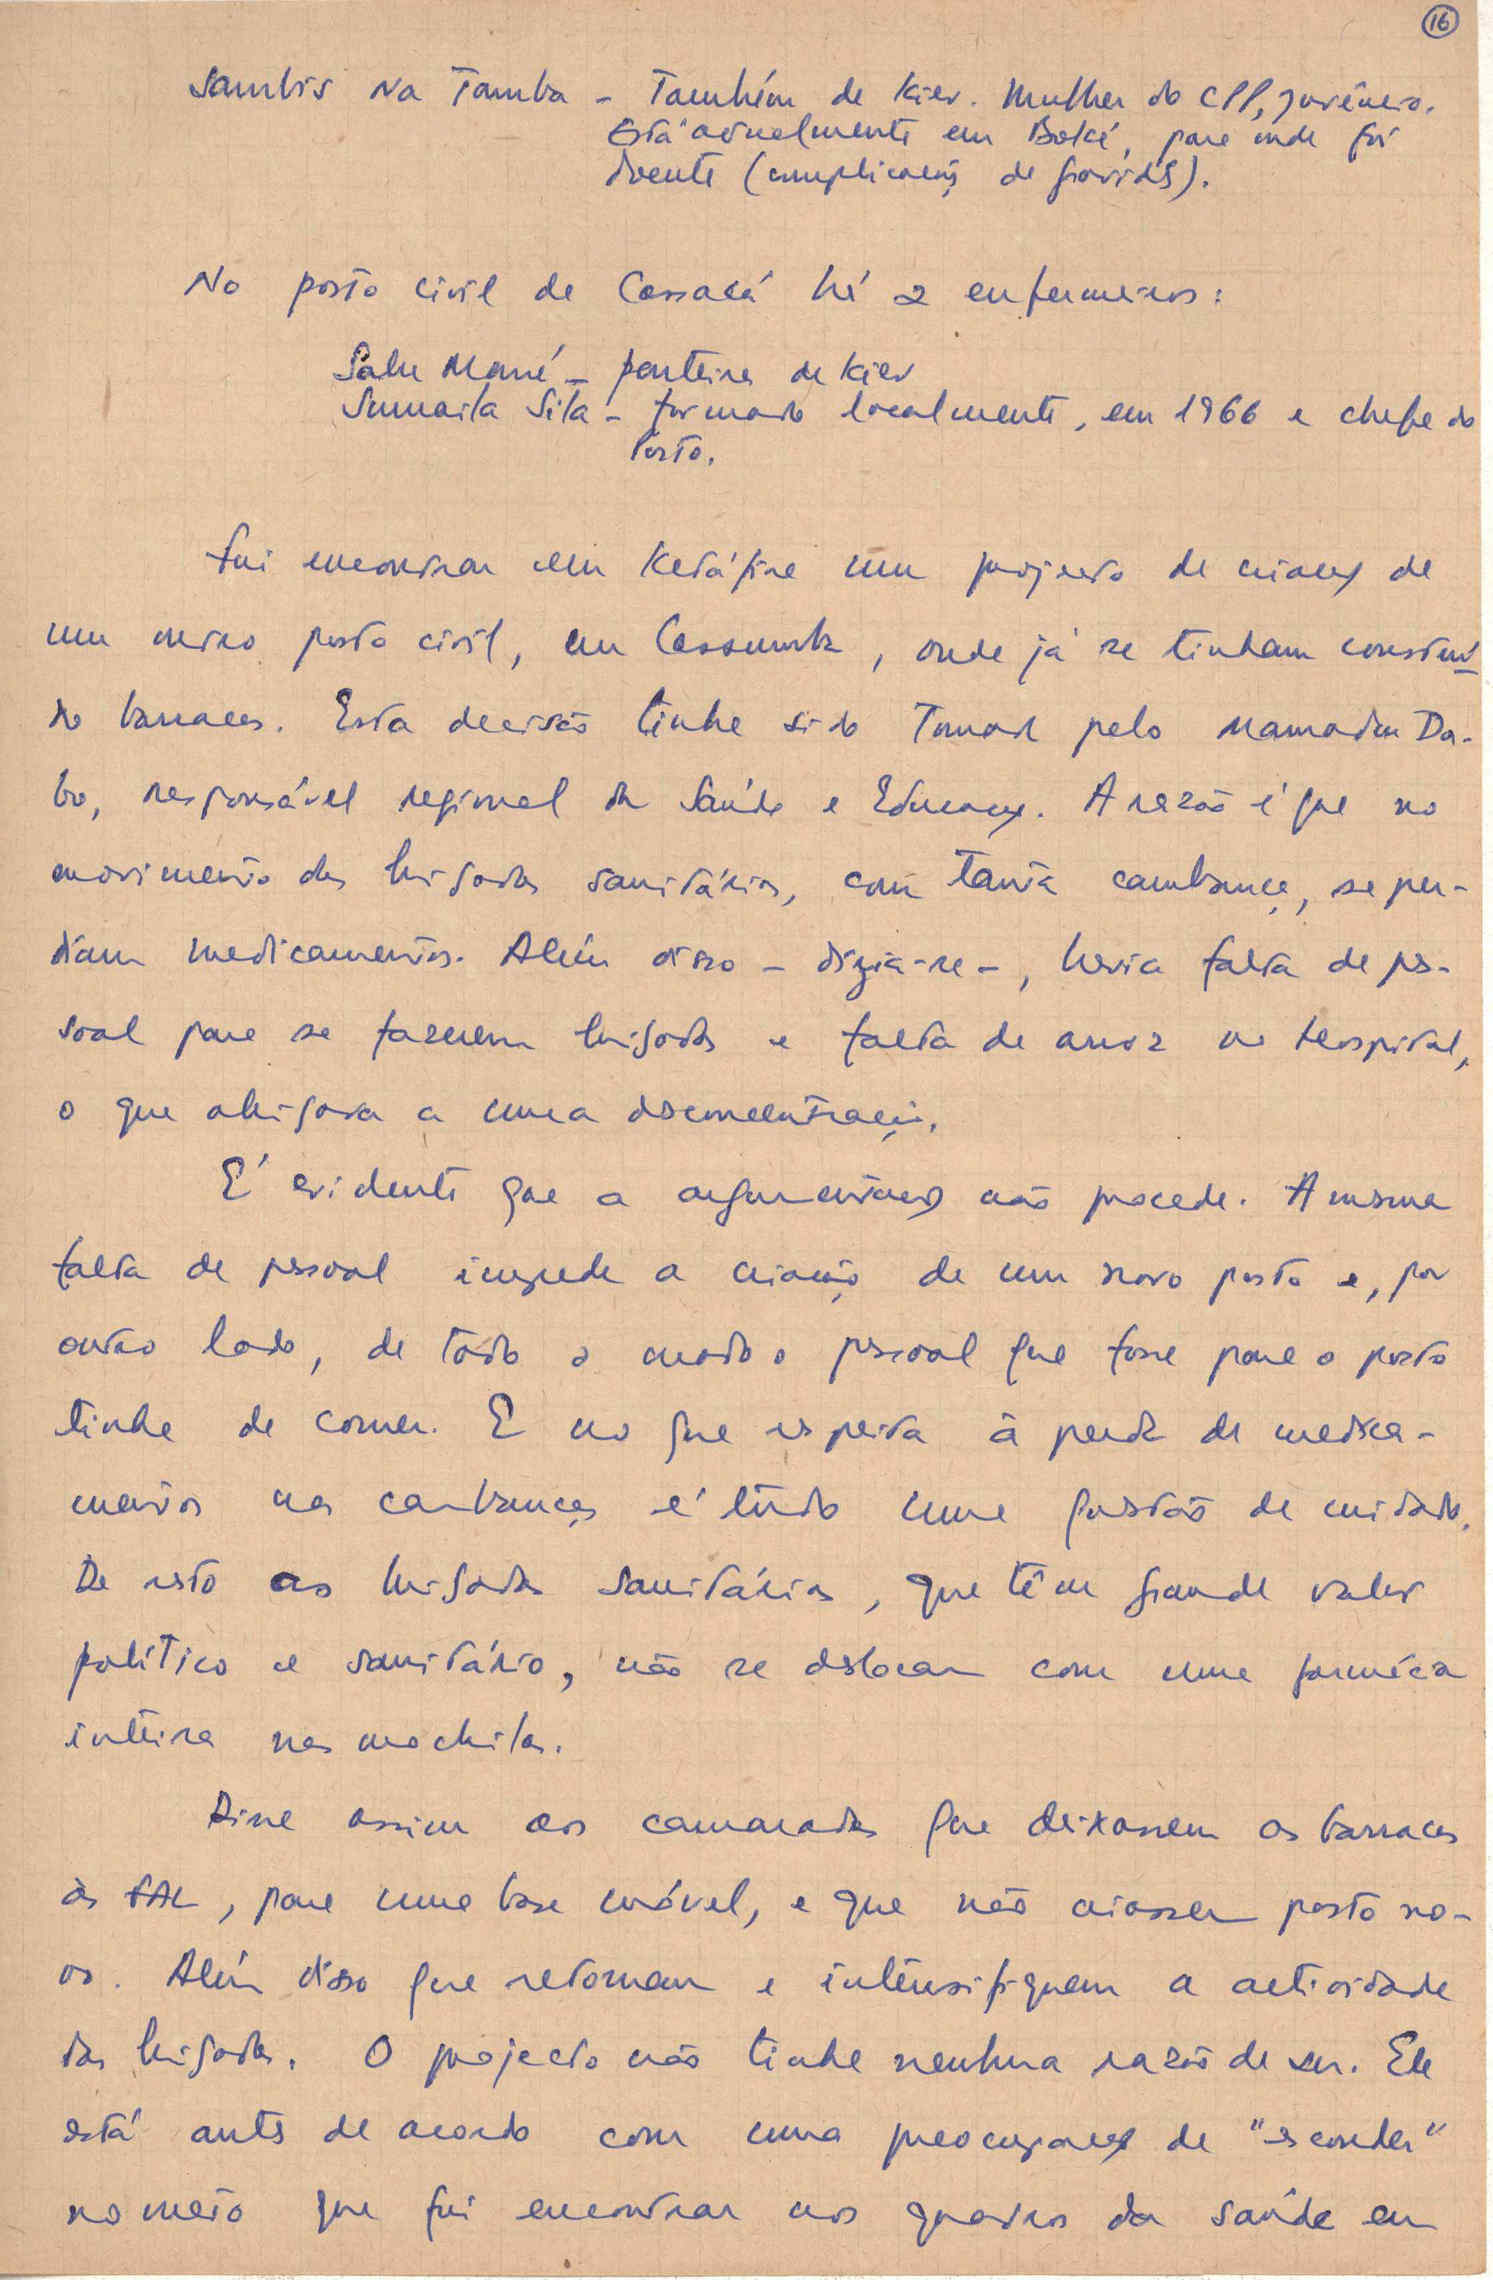 16
Sambis Na Tamba - Também de Kiev. Mulher do CPP, Juvêncio.
Está actualmente em Boké, para onde foi
doente (complicações de gravidez).
No posto civil de Cassacá há 2 enfermeiros:
Salu Mané - parteira de Kiev
Sumaila Sila - formado localmente, em 1966 e chefe do
Posto.
Fui encontrar em Ketáfine um projecto de criação de
um outro posto civil, em Cassumba, onde já se tinham construí-
do barracas. Esta decisão tinha sido tomada pelo Mamadu Da-
bo, responsável regional da Saúde e Educação. A razão é que no
movimento das brigadas sanitárias, com tanta cambança, se per-
diam medicamentos. Além disso - dizia-se -, havia falta de pes-
soal para se fazerem brigadas e falta de arroz no hospital,
o que obrigava a uma desconcentração.
É evidente que a argumentação não procede. A mesma
falta de pessoal impede a criação de um novo posto e, por
outro lado, de todo o modo o pessoal que fosse para o posto
tinha de comer. E no que respeita à perda de medica-
mentos nas cambanças é tudo uma questão de cuidado.
De resto as brigadas sanitárias, que têm grande valor
político e sanitário, não se deslocam com uma farmácia
inteira nas mochilas.
Disse assim aos camaradas que deixassem as barracas
às FAL, para uma base móvel, e que não criassem posto no-
vo. Além disso que retomem e intensifiquem a actividade
das brigadas. O projecto não tinha nenhuma razão de ser. Ele
está antes de acordo com uma preocupação de "esconder"
no mato que fui encontrar nos quadros da saúde em